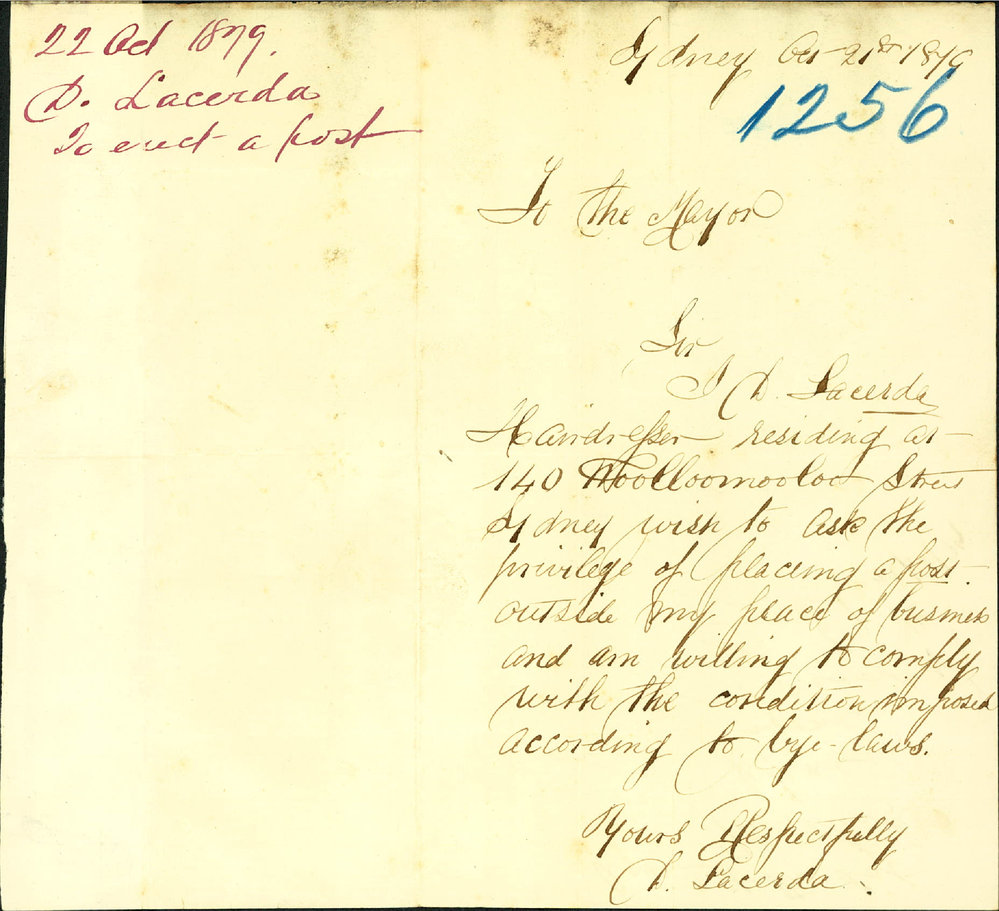 22 Oct 1879.
D. Lacerda
To erect a post
Sydney Oct 21st 1879
1256
To the Mayor
Sir
I D. Lacerda
Hairdresser residing at
140 Woolloomooloo Street
Sydney wish to ask the
privilege of placing a post
outside my place of business
and am willing to comply
with the condition imposed
according to bye-laws.
Yours Respectfully
D. Lacerda